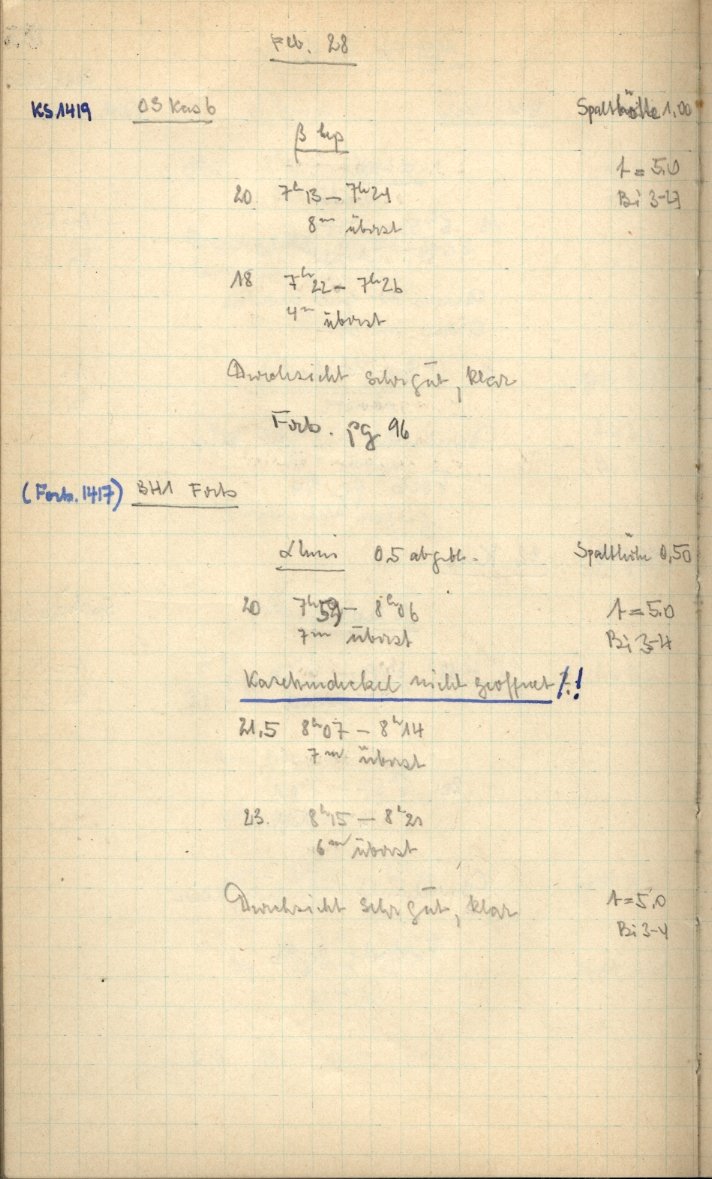 Feb. 28
KS 1419 03 Kas b Spalthöhe 1,00
β Lep
t = 5.0
20 7h13 – 7h21 Bi 3-4
8m überst
18 7h22 – 7h26
4m überst
Durchsicht sehr gut, klar
Forts. pg 96
(Forts. 1417) BH1 Forts
0,5 abgebl. Spalthöhe 0,50
20 7h59 – 8h06 t = 5.0
7m überst Bi 3-4
Kasettendeckel nicht geöffnet !!
21,5 8h07 – 8h14
7m überst
23. 8h15 – 8h21
6m überst
Durchsicht sehr gut, klar t = 5,0
Bi 3-4